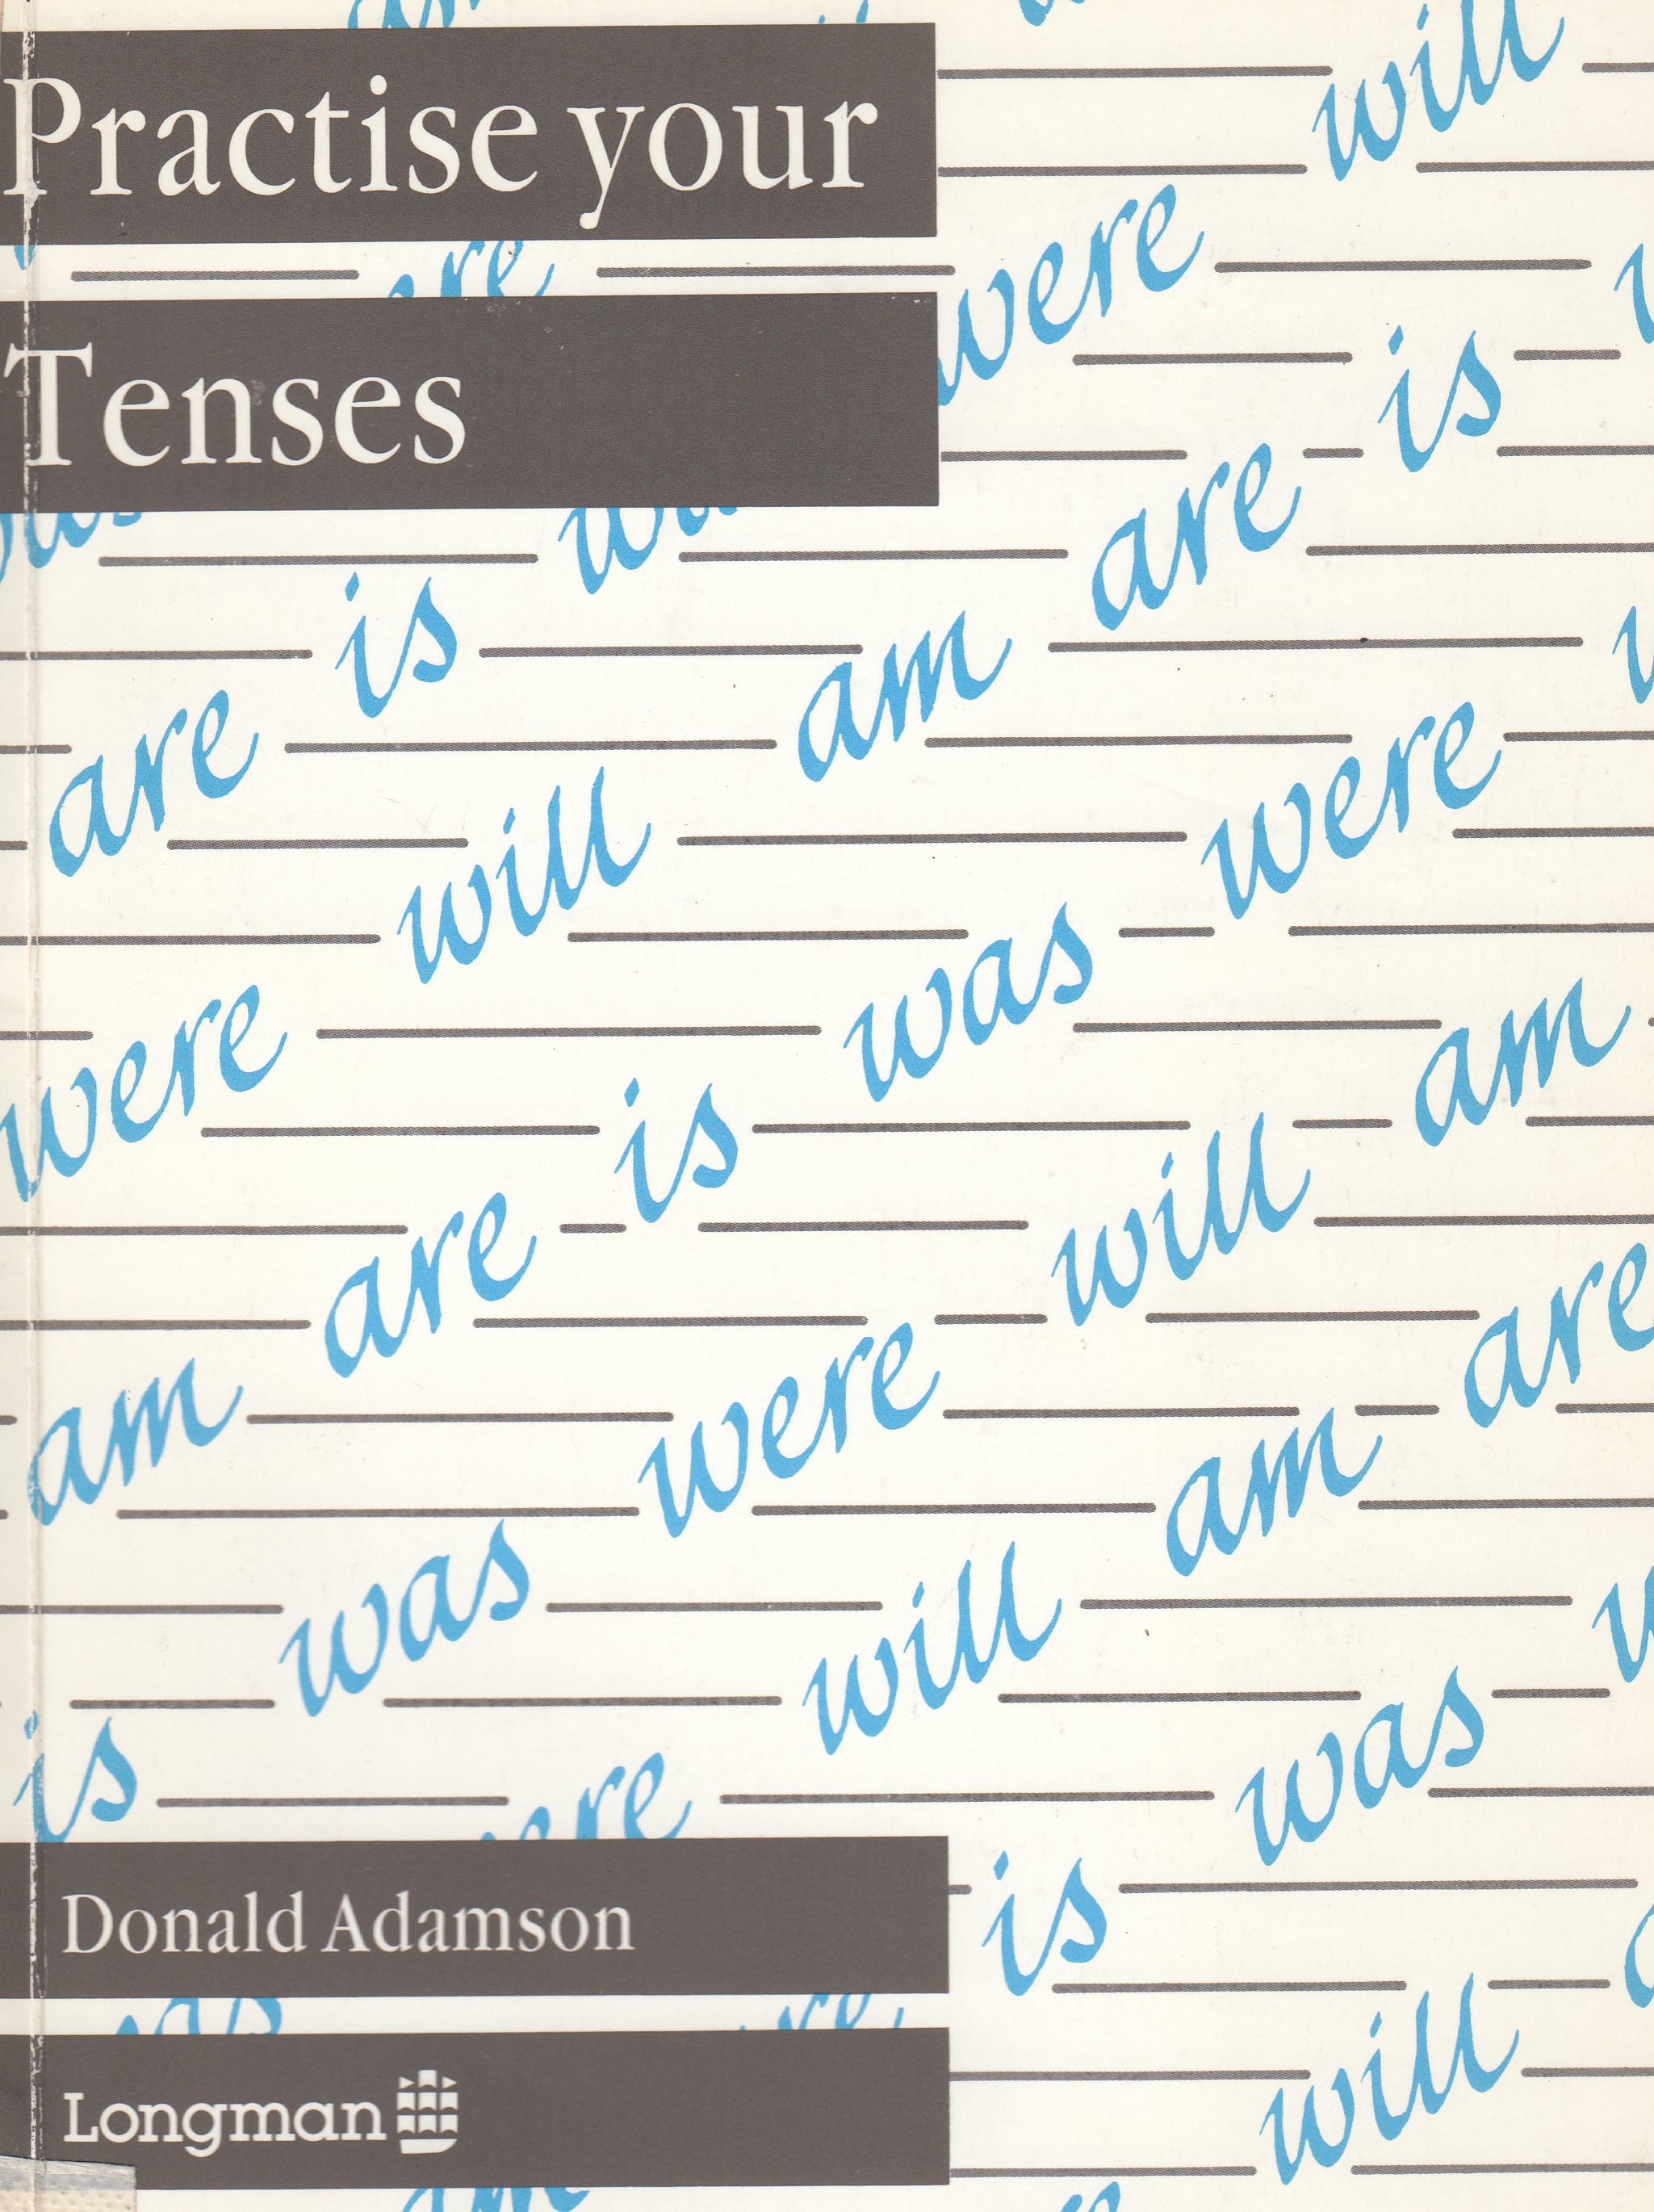 Practise your
will
were
Tenses
is
are
is
am
are
were
will
was
were
am
is
will
are
are
am
were
am
was
will
was
is
Donald Adamson
is
will
Longman